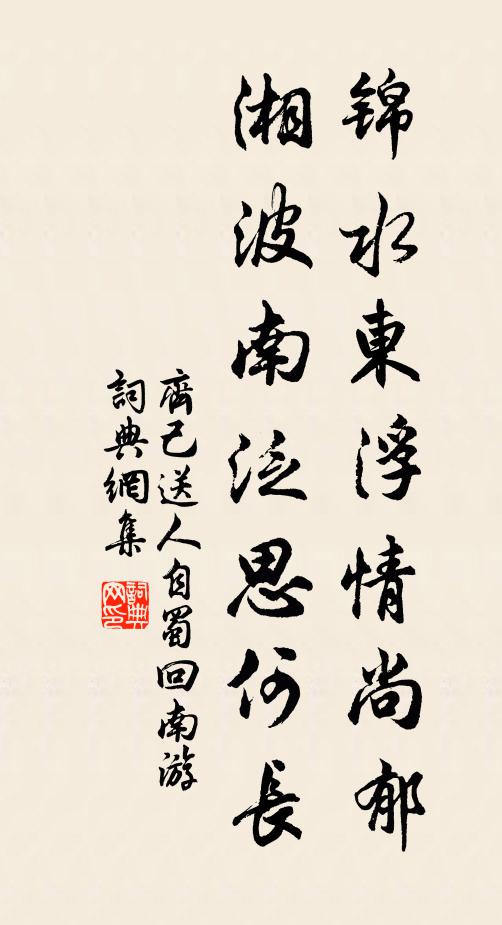 錦水東浮情尚郁
湘波南泛思何長
齊己送人自蜀回南游
詞典網集
詞典
网印